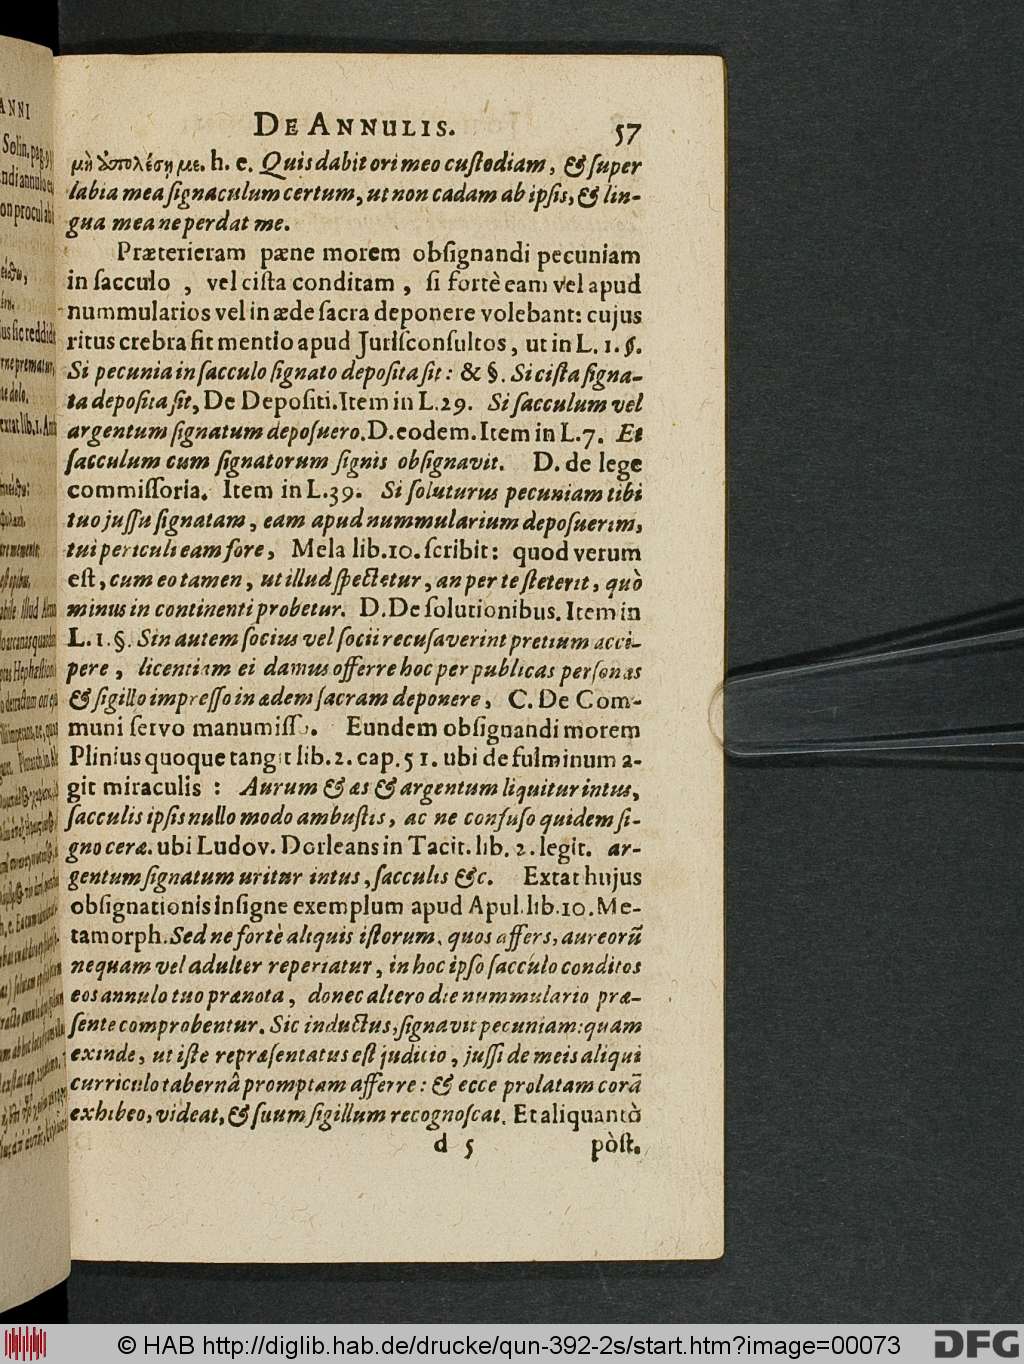 DE ANNULIS. 57
μὴ ὑπολέσῃ με. h. e. Quis dabit ori meo cuſtodiam, & ſuper
labia mea ſignaculum certum, ut non cadam ab ipſis, & lin-
gua mea ne perdat me.
Præterieram pæne morem obſignandi pecuniam
in ſacculo , vel ciſta conditam , ſi fortè eam vel apud
nummularios vel in æde ſacra deponere volebant: cujus
ritus crebra fit mentio apud Juriſconſultos, ut in L. 1. §.
Si pecunia in ſacculo ſignato depoſita ſit: & §. Si ciſta ſigna-
ta depoſita ſit, De Depoſiti. Item in L. 29. Si ſacculum vel
argentum ſignatum depoſuero. D. eodem. Item in L. 7. Et
ſacculum cum ſignatorum ſignis obſignavit. D. de lege
commiſſoria. Item in L. 39. Si ſoluturus pecuniam tibi
tuo juſſu ſignatam, eam apud nummularium depoſuerim,
tui periculi eam fore, Mela lib. 10. ſcribit: quod verum
eſt, cum eo tamen, ut illud ſpectetur, an per te ſteterit, quò
minus in continenti probetur. D. De ſolutionibus. Item in
L. 1. §. Sin autem ſocius vel ſocii recuſaverint pretium acci-
pere, licentiam ei damus offerre hoc per publicas perſonas
& ſigillo impreſſo in ædem ſacram deponere, C. De Com-
muni ſervo manumiſſo. Eundem obſignandi morem
Plinius quoque tangit lib. 2. cap. 51. ubi de fulminum a-
git miraculis : Aurum & æs & argentum liquitur intus,
ſacculis ipſis nullo modo ambuſtis, ac ne confuſo quidem ſi-
gno ceræ. ubi Ludov. Dorleans in Tacit. lib. 2. legit. ar-
gentum ſignatum uritur intus, ſacculis &c. Extat hujus
obſignationis inſigne exemplum apud Apul. lib. 10. Me-
tamorph. Sed ne fortè aliquis iſtorum, quos affers, aureorũ
nequam vel adulter reperiatur, in hoc ipſo ſacculo conditos
eos annulo tuo prænota, donec altero die nummulario præ-
ſente comprobentur. Sic inductus, ſignavit pecuniam: quam
exinde, ut iſte repræſentatus eſt judicio, juſſi de meis aliqui
curriculo tabernâ promptam afferre: & ecce prolatam corã
exhibeo, videat, & ſuum ſigillum recognoſcat. Et aliquantò
d 5 pòſt.
© HAB http://diglib.hab.de/drucke/qun-392-2s/start.htm?image=00073 DFG